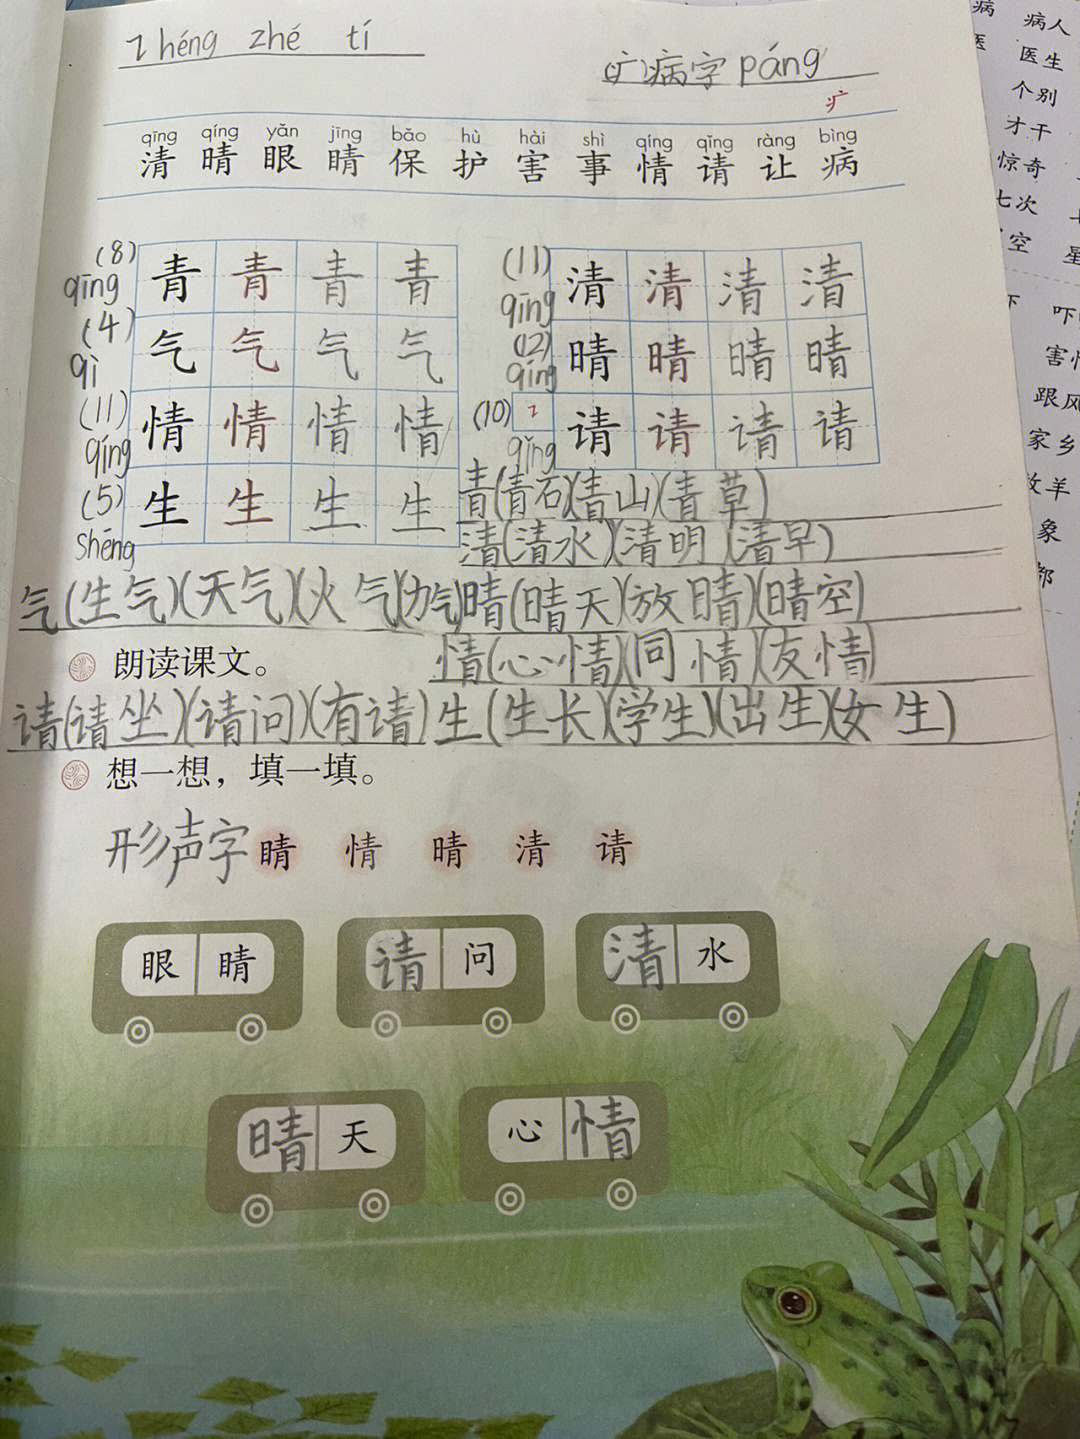 zhéng zhé tí
疒病字páng
疒
qīng qíng yǎn jīng bǎo hù hài shì qíng qǐng ràng bìng
清 晴 眼 睛 保 护 害 事 情 请 让 病
(8) qīng 青 青 青 青
(4) qì 气 气 气 气
(11) qíng 情 情 情 情
(5) shēng 生 生 生 生
(11) qīng 清 清 清 清
(12) qíng 晴 晴 晴 晴
(10) qǐng 请 请 请 请
青(青石)(青山)(青草)
清(清水)(清明)(清早)
气(生气)(天气)(火气)(力气)晴(晴天)(放晴)(晴空)
朗读课文。
情(心情)(同情)(友情)
请(请坐)(请问)(有请)生(生长)(学生)(出生)(女生)
想一想，填一填。
形声字 睛 情 晴 清 请
眼 睛 请 问 清 水
晴 天 心 情
病 病人
医 医生
个别
才干
惊奇
七次
空 星
吓
害怕
跟风
家乡
牧羊
象
都